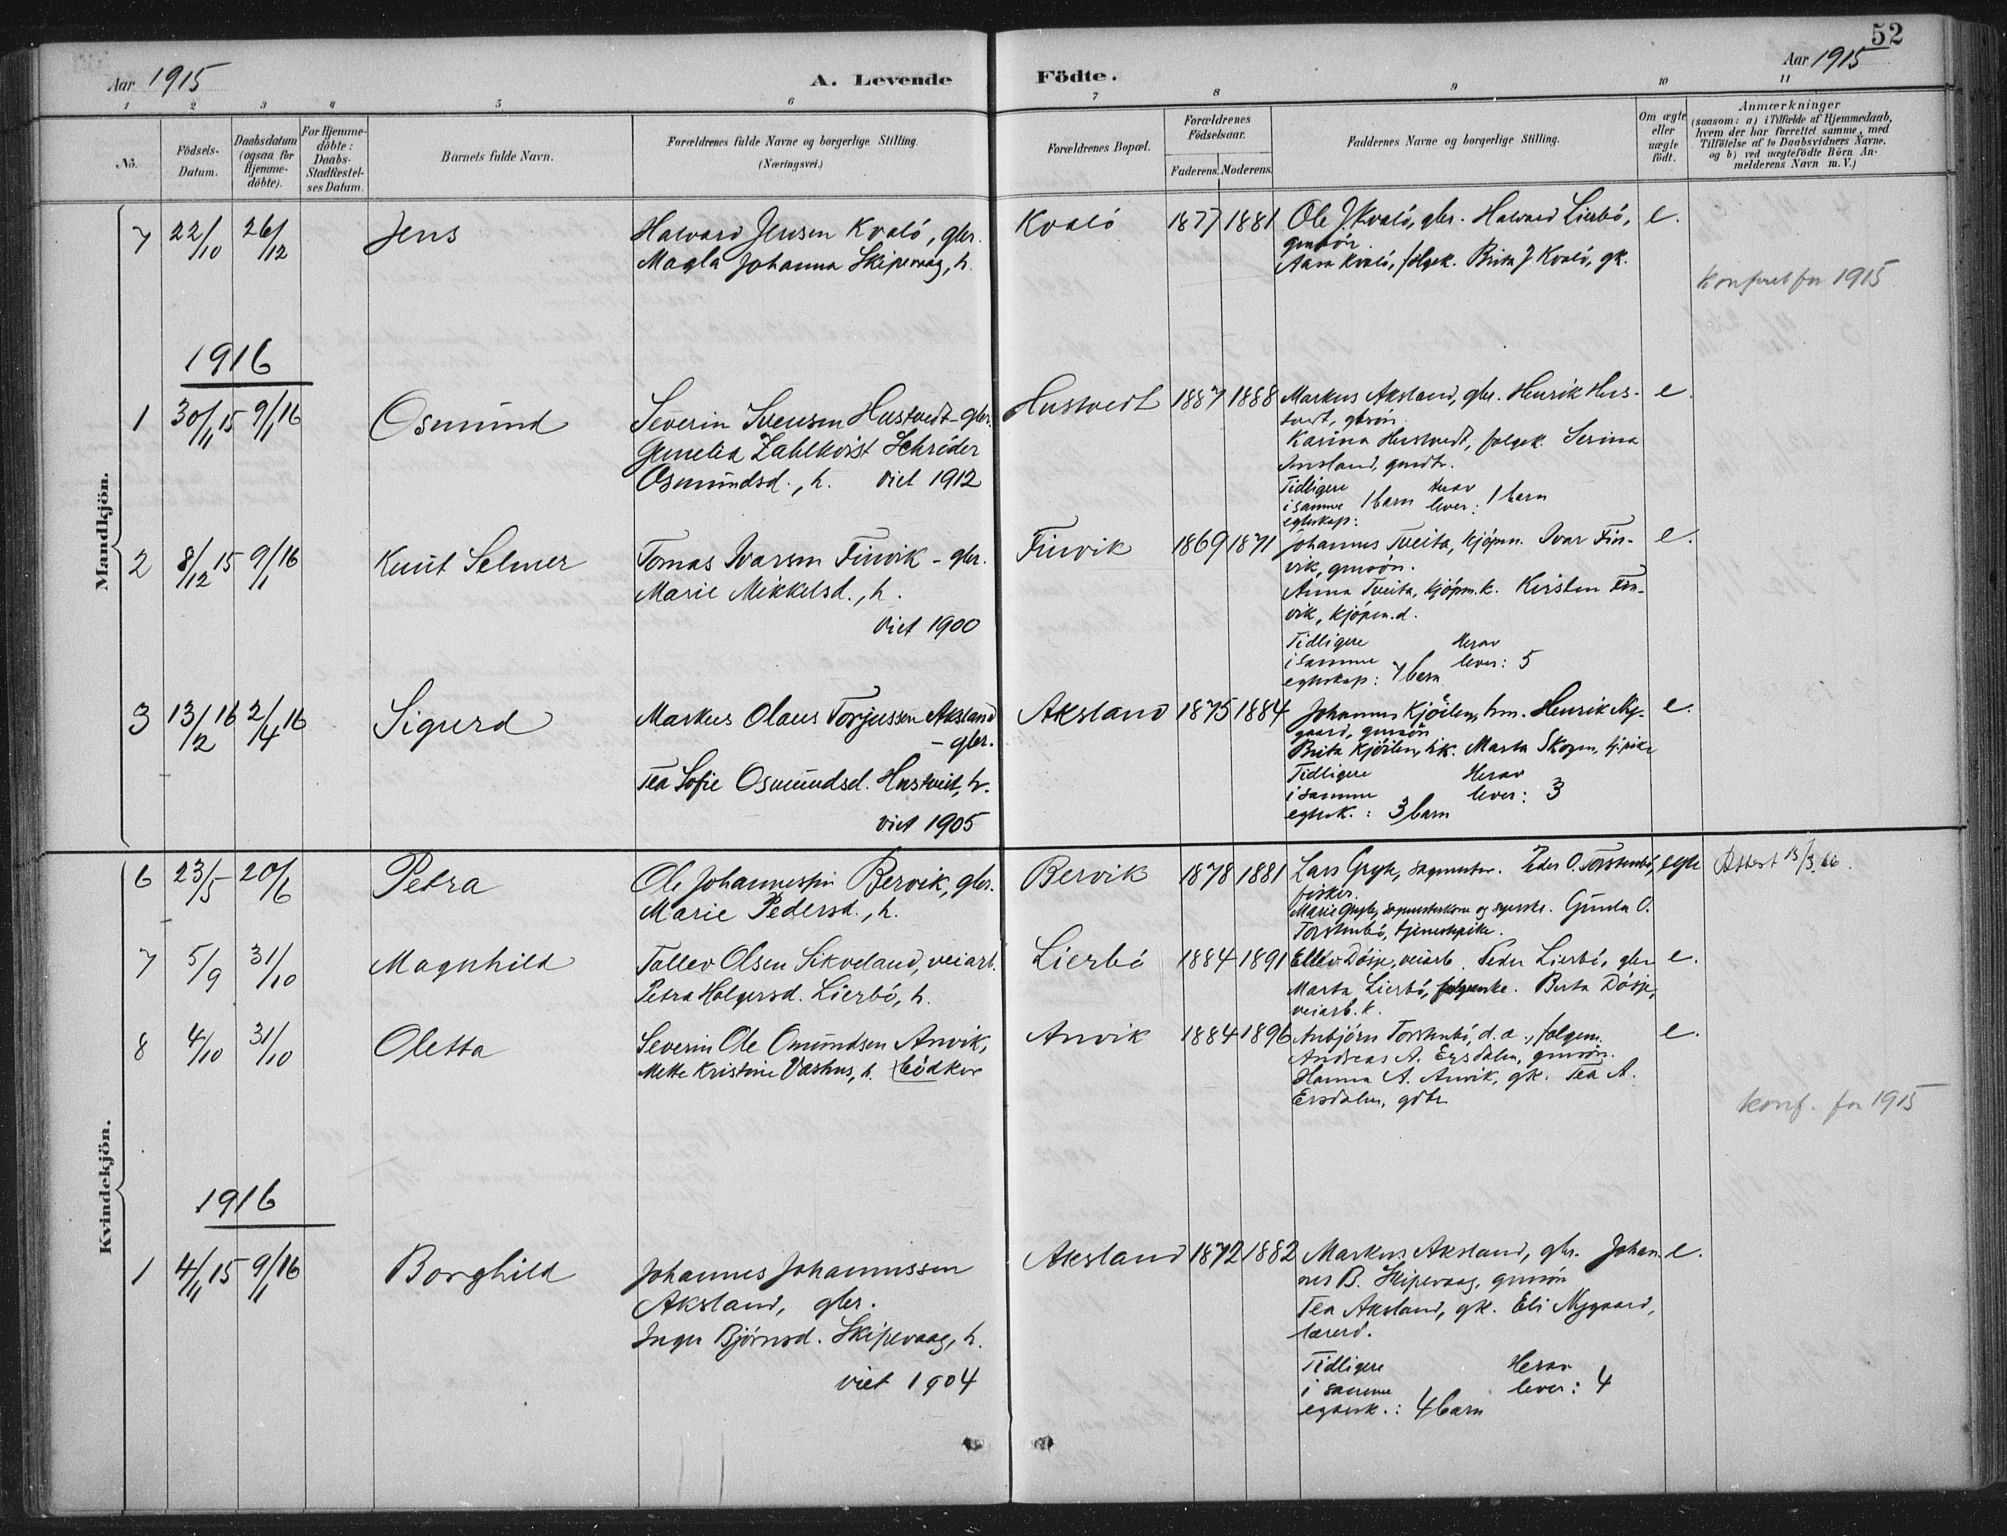 52
Aar 1915
A. Levende
Födte.
Aar 1915
1 2 3 4 5 6 7 8 9 10 11
No.
Födsels-Datum.
Daabsdatum (ogsaa for Hjemme-döbte).
For Hjemme-döbte: Daabs-Stadfæstel-ses Datum.
Barnets fulde Navn.
Forældrenes fulde Navne og borgerlige Stilling.
(Næringsvei.)
Forældrenes Bopæl.
Forældrenes Födselsaar.
Faderens. Moderens.
Faddernes Navne og borgerlige Stilling.
Om ægte eller uægte födt.
Anmærkninger
(saasom: a) i Tilfælde af Hjemmedaab,
hvem der har forrettet samme, med
Tilföielse af to Daabsvidners Navne,
og b) ved uægtefödte Börn An-
melderens Navn m. V.)
Mandkjön.
7 22/10 26/12 Jens
Halvard Jensen Kvalö, gbr.
Magla Johanna Skipevaag, h.
Kvalö 1877 1881
Ole J. Kvalö, gbr. Halvard Lierbö,
gmsön.
Aasa Kvalö, folgek. Brita J Kvalö, gk.
e.
Konferet for 1915
1916
1 30/11 15 9/1 16 Osmund
Severin Svensen Hustvedt - gbr.
Gunelia Zahlkvist Schrider
Osmundsd., h. viet 1912
Hustvedt 1887 1888
Markus Aksland, gbr. Henrik Hus-
tvedt, gbrsön.
Karina Hustvedt, folgek. Serina
Aksland, gmdtr.
Tidligere i samme egteskap: 1 barn Herav lever: 1 barn
e.
2 8/12 15 9/1 16 Knut Selmer
Tomas Ivarsen Finvik - gbr.
Marie Mikkelsd., h.
viet 1900
Finvik 1869 1871
Johannes Tveita, kjöpm. Ivar Fin-
vik, gmsön.
Anna Tveita, kjöpm.k. Kirsten Fin-
vik, kjöpm.d.
Tidligere i samme egteskap: 7 barn Herav lever: 5
e.
3 13/2 16 2/4 16 Sigurd
Markus Olaus Torjussen Aksland
- gbr.
Tea Sofie Osmundsd. Hustveit, h.
viet 1905
Aksland 1875 1884
Johannes Kjöilen, hm. Henrik Ny-
gaard, gmsön
Brita Kjöilen, hk. Marta Skogen, tj.pike
Tidligere i samme egtesk.: 3 barn Herav lever: 3
e.
Kvindekjön.
6 23/5 20/6 Petra
Ole Johannessen Bervik, gbr.
Marie Pedersd., h.
Bervik 1878 1881
Lars Gryte, sagmester. Peder O. Torstenbö,
fisker.
Marie Gryte, sagmesterkone og syerske. Gunda O.
Torstenbö, tjenestepike.
egte
Attest 15/3.26.
7 5/9 31/10 Magnhild
Tollev Olsen Sikveland, veiarb.
Petra Holgersd. Lierbö, h.
Lierbö 1884 1891
Ellev Dösje, veiarb. Peder Lierbö, gbr
Marta Lierbö, Berta Dösje,
veiarb. k.
e.
8 4/10 31/10 Oletta
Severin Ole Omundsen Anvik,
Mette Kristine Vashus, h. bödker
Anvik 1884 1896
Anbjörn Torstenbö, d.a., folgem.
Andreas A. Ersdalen, gmsön.
Hanna A. Anvik, gk. Tea A.
Ersdalen, gdtr
e.
Konf. for 1915
1916
1 4/11 15 9/1 16 Borghild
Johannes Johannessen
Aksland, gbr.
Inger Björnsd. Skipevaag, h.
viet 1904
Aksland 1872 1882
Markus Aksland, gbr. Johan-
nes B. Skipevaag, gmsön
Tea Aksland, gk. Eli Nygaard,
lærerd.
Tidligere i samme egtesk.: 4 barn Herav lever: 4
e.